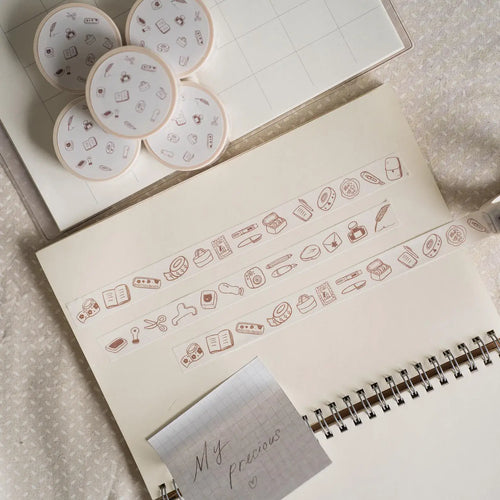 My
precious
♡